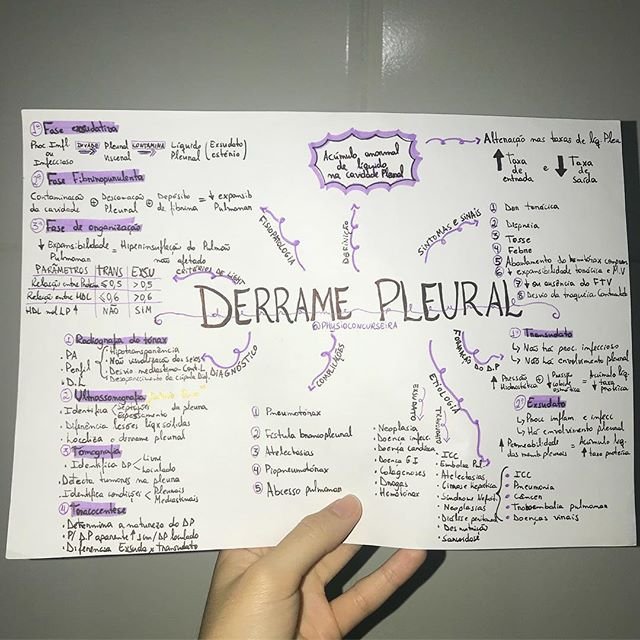 1º Fase exsudativa
Proc Infl INVADE Pleural CONTAMINA Líquido (Exsudato
ou Infeccioso Visceral Pleural estéril)
2º Fase Fibrinopurulenta
Contaminação + Descamação + Depósito = ↓ expansib
da cavidade Pleural de fibrina Pulmonar
3º Fase de organização
↓ Expansibilidade = Hiperinsuflação do Pulmão
Pulmonar não afetado
CRITÉRIOS DE LIGHT
PARÂMETROS TRANS EXSU
≤0,5 >0,5
Relação entre HDL ≤0,6 >0,6
NÃO SIM
FISIOPATOLOGIA
Acúmulo anormal
de líquido
na cavidade Pleural
DEFINIÇÃO
Alteração nas taxas de líq. Pleu
↑ Taxa de entrada e ↓ Taxa de saída
SINTOMAS E SINAIS
1 Dor torácica
2 Dispneia
3 Tosse
4 Febre
5 Abaulamento do hemitórax comprom
6 ↓ expansibilidade torácica e MV
7 ↓ ou ausência do FTV
8 Desvio da traqueia Contralateral
DERRAME PLEURAL
@PHYSIOCONCURSEIRA
DIAGNÓSTICO
1 Radiografia do tórax
• PA
• Perfil
• D.L
Hipotransparência
Não visualização dos seios
Desvio mediastino Cont.L
2 Ultrassonografia
• Identifica Septações da pleura
Espessamento
• Diferencia lesões líq x sólidas
• Localiza o derrame pleural
3 Tomografia
• Identifica DP Livre
Loculado
• Detecta tumores na pleura
• Identifica condições Pleurais
Mediastinais
4 Toracocentese
• Determina a natureza do D.P
• P/ D.P aparente ↑ sim/DP loculado
• Diferencia Exsuda x transudato
COMPLICAÇÕES
1 Pneumotórax
2 Fístula broncopleural
3 Atelectasias
4 Piopneumotórax
5 Abcesso pulmonar
ETIOLOGIA
EXSUDATO
• Neoplasia
• Doença infecc.
• Doença cardíaca
• Doença G.I
• Colagenoses
• Drogas
• Hemotórax
TRANSUDATO
• ICC
• Embolia Pul
• Atelectasias
• Cirrose hepática
• Síndrome Nefrót.
• Neoplasias
• Diálise peritoneal
• Desnutrição
• Sarcoidose
FORMAÇÃO DO D.P
1º Transudato
↳ Não há proc. infeccioso
↳ Não há envolvimento pleural
↑ Pressão Hidrostática + ↓ Pressão coloide osmótica = Acúmulo líq. ↓ taxa proteica
2º Exsudato
↳ Proc inflam e infecc
↳ Há envolvimento pleural
↑ Permeabilidade = Acúmulo líq.
das memb pleurais ↑ taxa proteica
• ICC
• Pneumonia
• Câncer
• Tromboembolia pulmonar
• Doenças virais